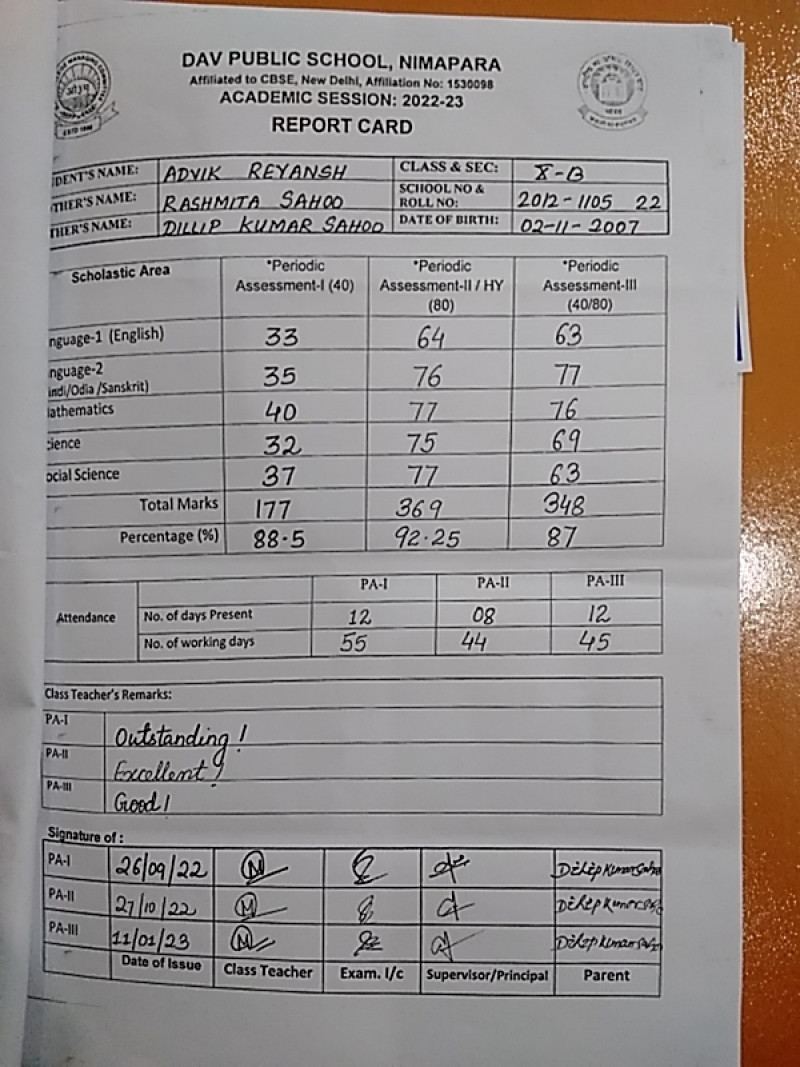 DAV PUBLIC SCHOOL, NIMAPARA
Affiliated to CBSE, New Delhi, Affiliation No: 1530098
ACADEMIC SESSION: 2022-23
REPORT CARD
DENT'S NAME: ADVIK REYANSH CLASS & SEC: X-B
THER'S NAME: RASHMITA SAHOO SCHOOL NO & ROLL NO: 2012-1105 22
HER'S NAME: DILLIP KUMAR SAHOO DATE OF BIRTH: 02-11-2007
Scholastic Area *Periodic Assessment-I (40) *Periodic Assessment-II / HY (80) *Periodic Assessment-III (40/80)
nguage-1 (English) 33 64 63
nguage-2 indi/Odia /Sanskrit) 35 76 77
athematics 40 77 76
cience 32 75 69
ocial Science 37 77 63
Total Marks 177 369 348
Percentage (%) 88.5 92.25 87
PA-I PA-II PA-III
Attendance No. of days Present 12 08 12
No. of working days 55 44 45
Class Teacher's Remarks:
PA-I Outstanding!
PA-II Excellent!
PA-III Good!
Signature of :
PA-I 26/09/22
PA-II 27/10/22
PA-III 11/01/23
Date of Issue Class Teacher Exam. I/c Supervisor/Principal Parent